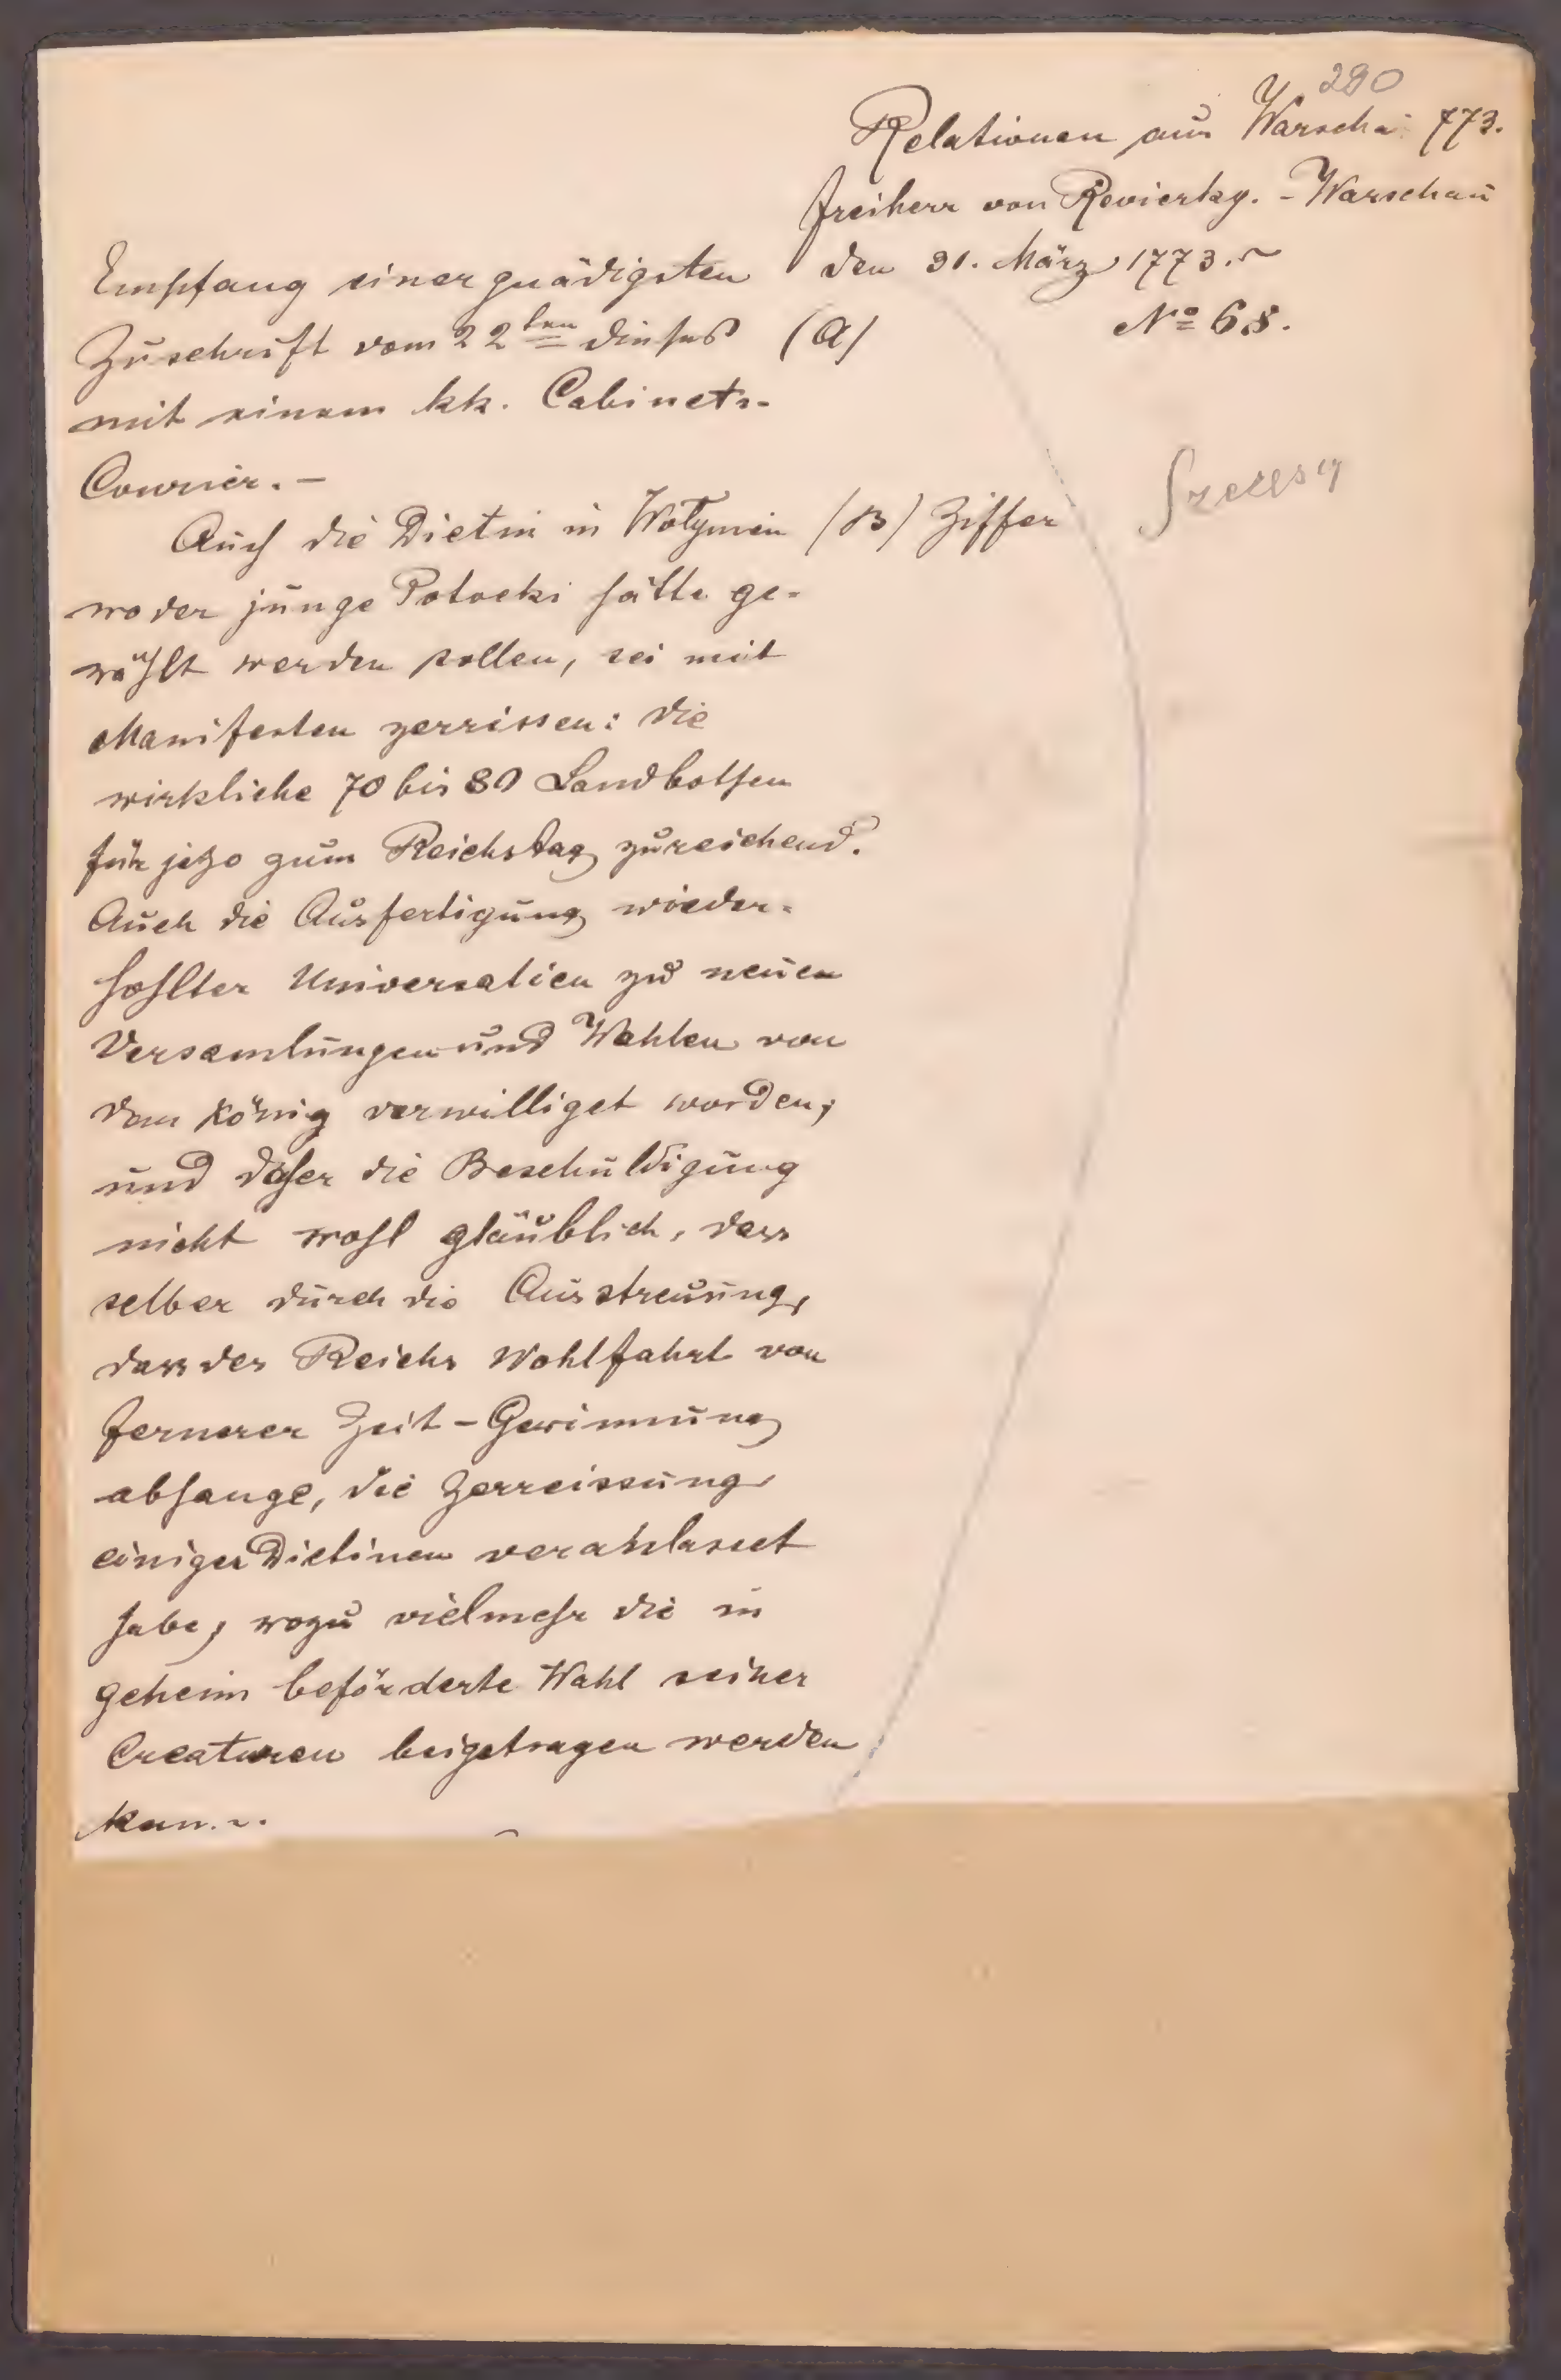 280
Relationen aus Warschau 773.
Freiherr von Revierky. - Warschau
den 31. März 1773.
No 68.
Empfang einer gnädigsten
Zuschrift vom 22ten dieses (a)
mit einem kk. Cabinets-
Courrier. -
Auch die Dietin in Wolynien (B) Ziffer
wo der junge Potocki hätte ge-
wählt werden sollen, sei mit
Manifesten zerrissen: die
wirkliche 70 bis 80 Landbothen
für jezo zum Reichstag zureichend.
Auch die Ausfertigung wieder-
hohlter Universalien zu neuen
Versamlungen und Wahlen von
dem König verwilliget worden,
und daher die Beschuldigung
nicht wohl gläublich, dass
selber durch die Ausstreuung,
dass des Reichs Wohlfahrt von
fernerer Zeit-Gewinnung
abhange, die Zerreissung
einiger Dietinen verahlasset
habe, wozu vielmehr die in
geheim beförderte Wahl seiner
Creaturen beigetragen werden
kan.